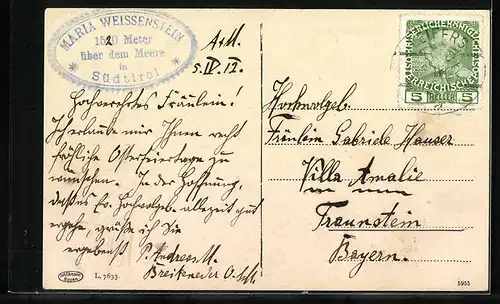 MARIA WEISSENSTEIN
1520 Meter
über dem Meere
in
Südtirol
5. IV. 12.
Hochverehrtes Fräulein!
Ich erlaube mir Ihnen recht
fröhliche Osterfeiertage zu
wünschen. In der Hoffnung,
Ew. Hochwolgeb. allezeit gut
ergehe, grüßt Sie
ergebenst P. Andreas M.
Breiteneder O. S. M.
Hochwolgeb.
Fräulein Gabriele Hauser
Villa Amalie
Traunstein
Bayern.
5 HELLER 5
L. 7633.
5955